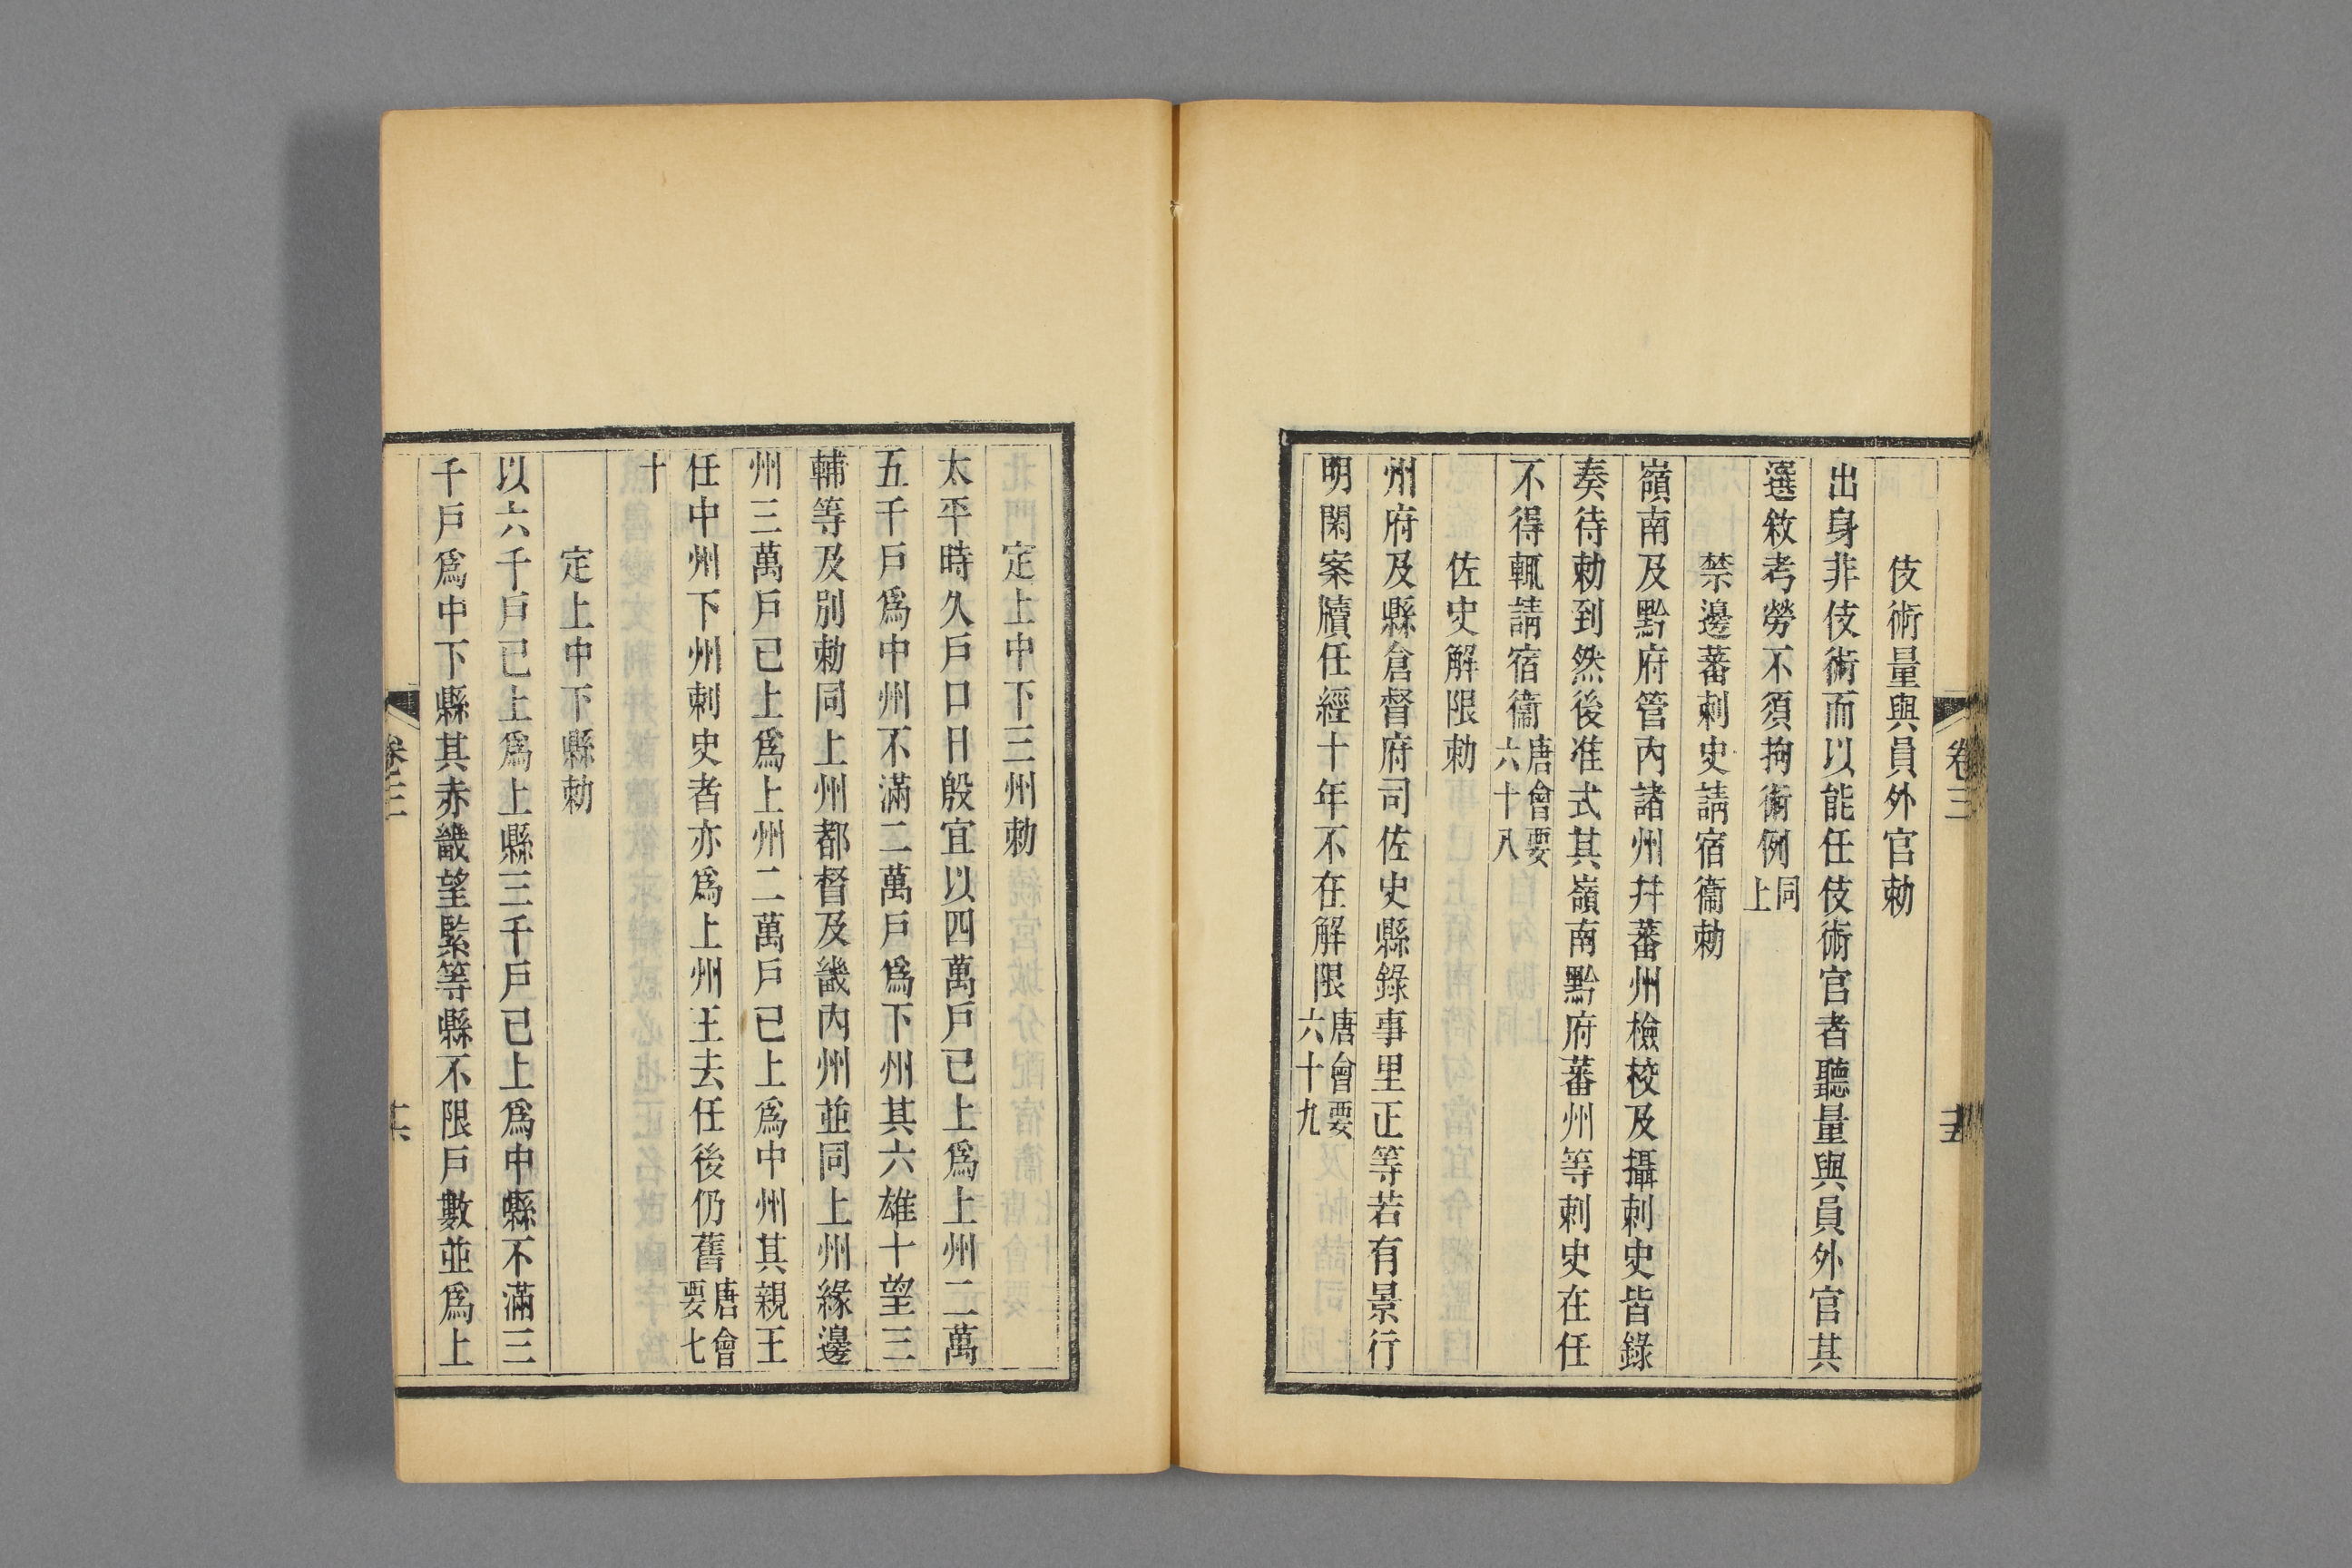 卷三
十五
伎術量與員外官勅
出身非伎術而以能任伎術官者聽量與員外官其
選敘考勞不須拘術例同上
禁邊蕃刺史請宿衞勅
嶺南及黔府管內諸州幷蕃州檢校及攝刺史皆錄
奏待勅到然後准式其嶺南黔府蕃州等刺史在任
不得輒請宿衞唐會要六十八
佐史解限勅
州府及縣倉督府司佐史縣錄事里正等若有景行
明閑案牘任經十年不在解限唐會要六十九
定上中下三州勅
太平時久戶口日殷宜以四萬戶已上爲上州二萬
五千戶爲中州不滿二萬戶爲下州其六雄十望三
輔等及別勅同上州都督及畿內州並同上州緣邊
州三萬戶已上爲上州二萬戶已上爲中州其親王
任中州下州刺史者亦爲上州王去任後仍舊唐會要七
十
定上中下縣勅
以六千戶已上爲上縣三千戶已上爲中縣不滿三
千戶爲中下縣其赤畿望緊等縣不限戶數並爲上
卷三
十六